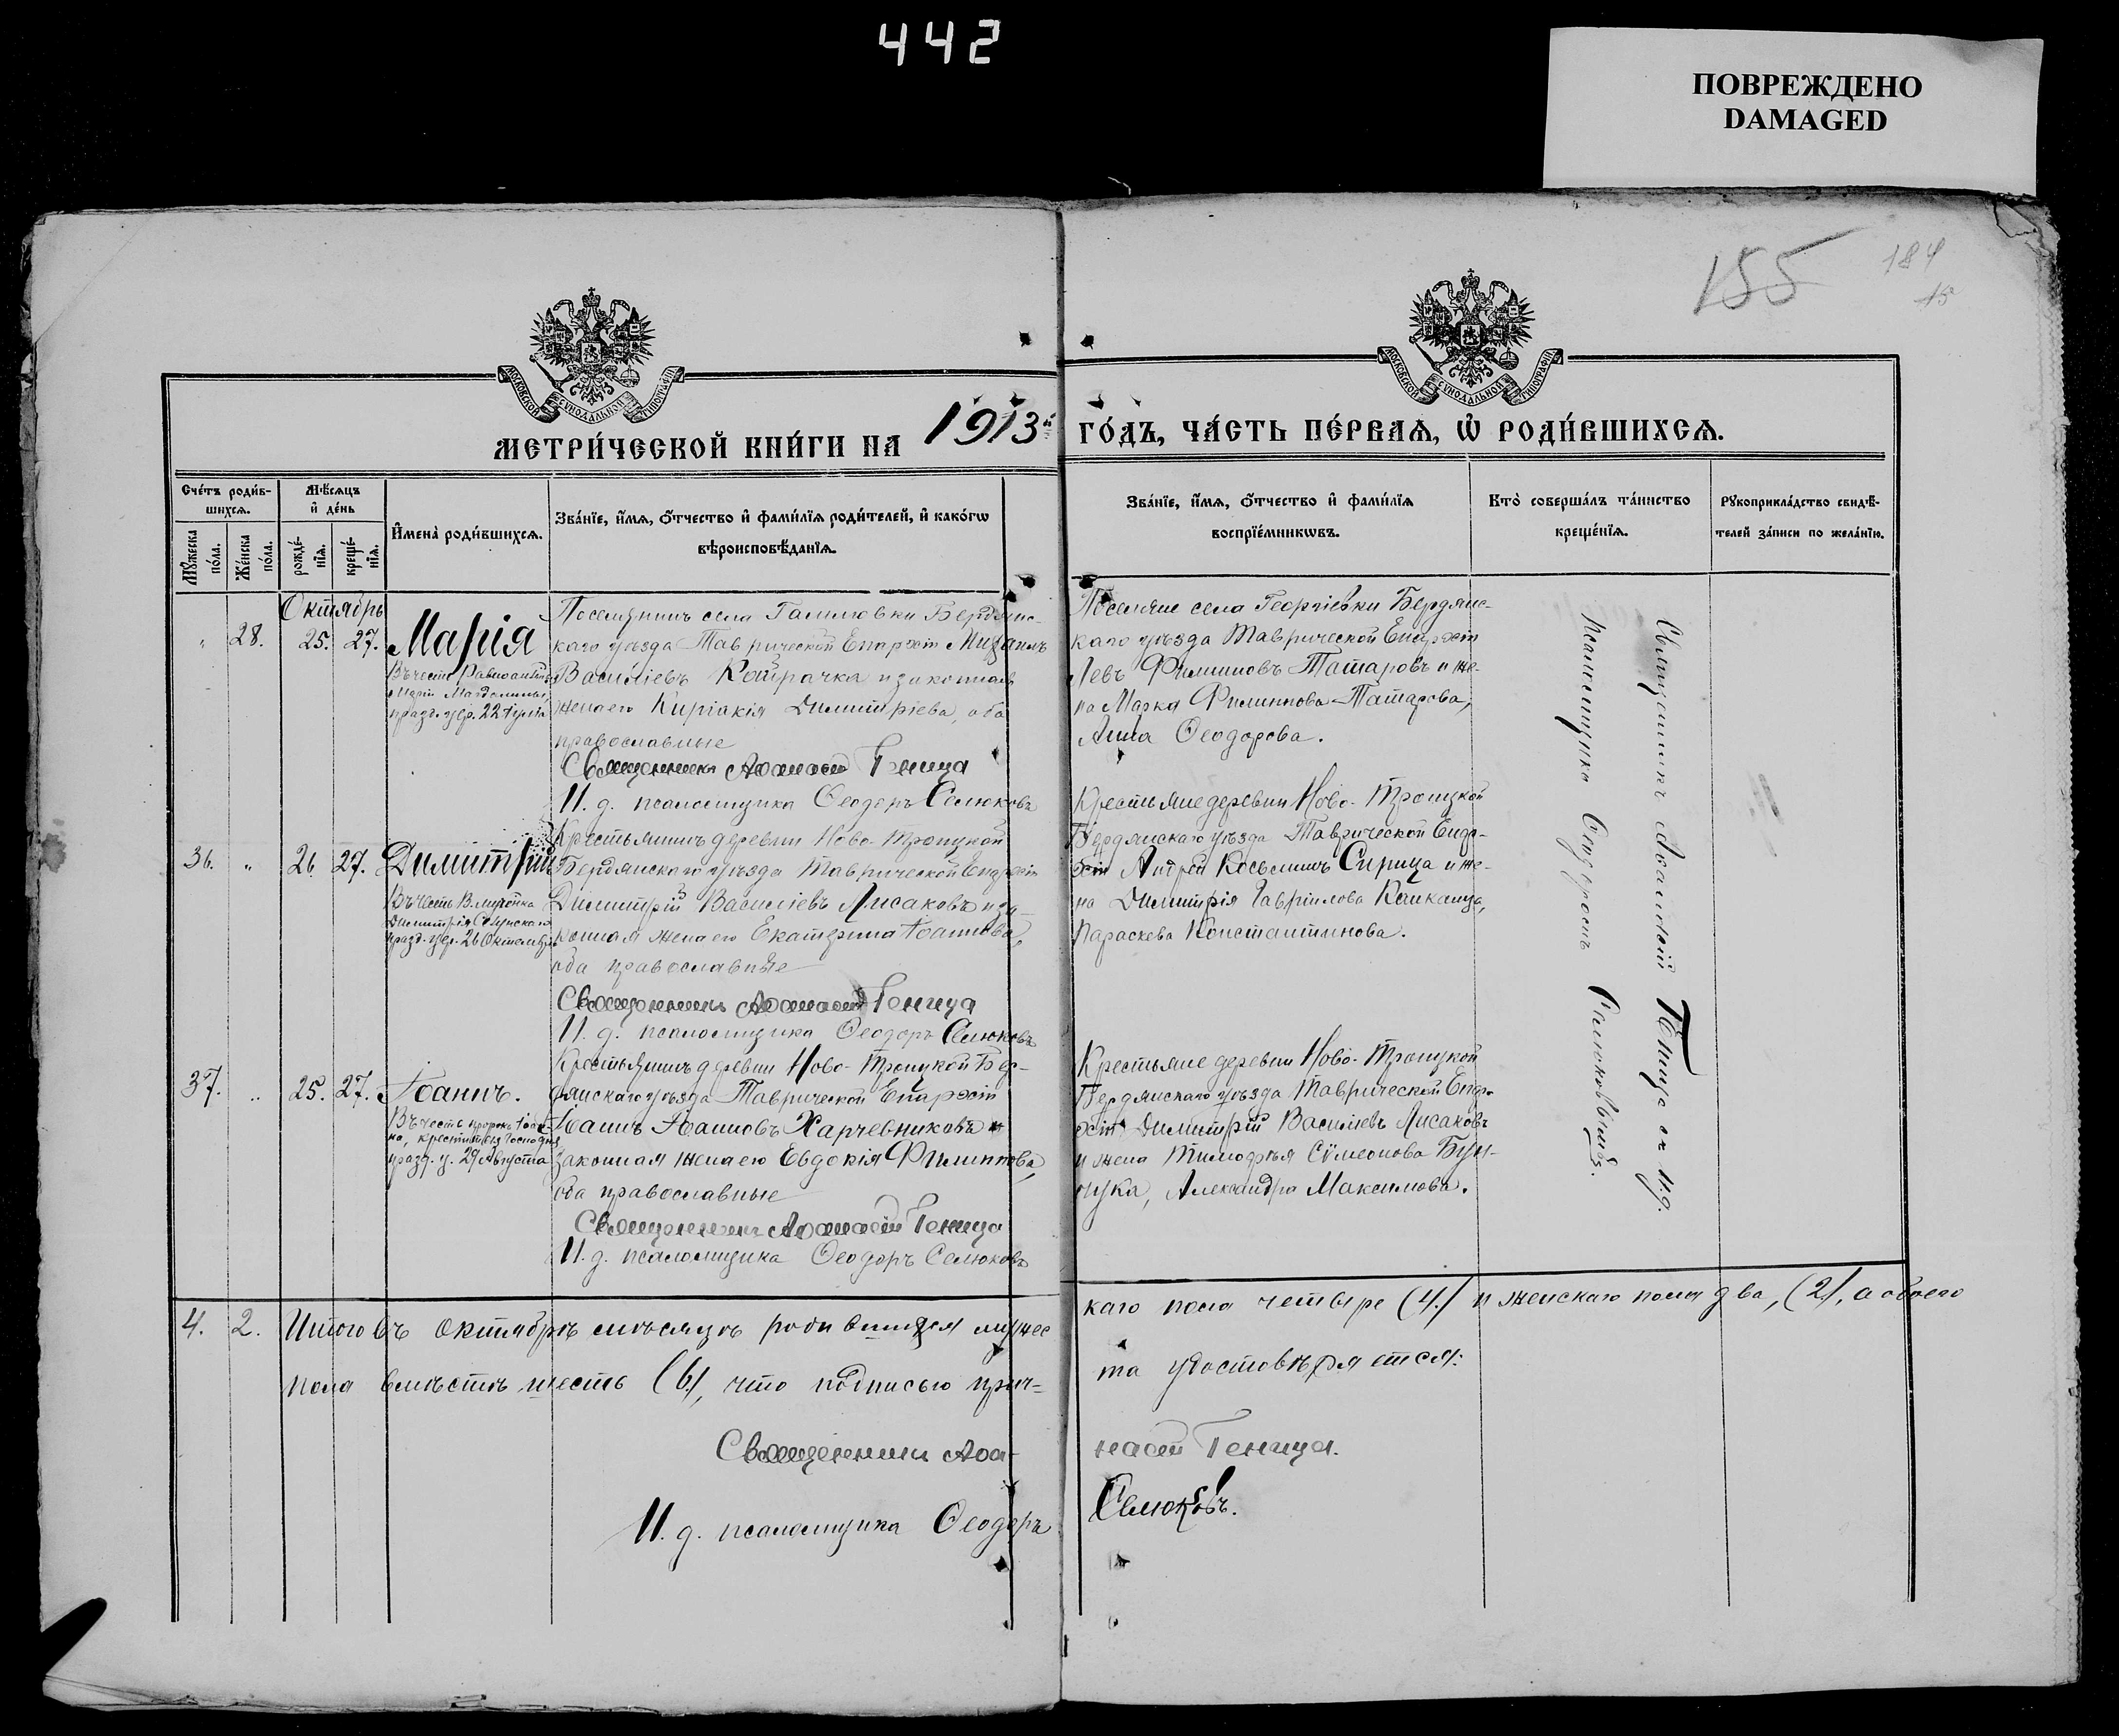 442
ПОВРЕЖДЕНО
DAMAGED
155
184
15
МОСКОВСКОЙ СУНОДАЛЬНОЙ ТИПОГРАФІИ
МОСКОВСКОЙ СУНОДАЛЬНОЙ ТИПОГРАФІИ
МЕТРИ́ЧЕСКОЙ КНИ́ГИ НА 1913й ГО́ДЪ, ЧА́СТЬ ПЕ́РВАѦ, Ѡ҆ РОДИ́ВШИХСѦ.
Счéтъ роди́в-
шихсѧ.
Мꙋ́жеска
по́ла.
Же́нска
по́ла.
Мѣ́сѧцъ
и҆ де́нь
рожде́-
нїѧ.
креще́-
нїѧ.
И҆мена̀ роди́вшихсѧ.
Зва́нїе, и҆́мѧ, ѻ҆́тчество и҆ фами́лїѧ роди́телей, и҆ како́гѡ
вѣроисповѣ́данїѧ.
Зва́нїе, и҆́мѧ, ѻ҆́тчество и҆ фами́лїѧ
воспрїе́мникѡвъ.
Кто̀ соверша́лъ та́инство
креще́нїѧ.
Рꙋкоприкла́дство свидѣ́-
телей за́писи по жела́нїю.
Октябрь
" 28. 25. 27. Марія
Въ честь Равноап.
Маріи Магдалины
празд. цер. 22 Іуля
Поселянинъ села Бердянс-
каго уѣзда Таврической Епархіи Михаилъ
Василіевъ Катрачка и законная
жена его Киріакія Димитріева, оба
православные
Священникъ Аѳанасій Геница
И. д. псаломщика Ѳеодоръ Селюковъ
Поселяне села Георгіевки Бердянс-
каго уѣзда Таврической Епархіи
Левъ Филипповъ Татаровъ и же-
на Марка Филиппова Татарова,
Анна Ѳеодорова.
36. " 26. 27. Димитрій
Въ честь В. мученика
Димитрія Солунскаго
празд. цер. 26 Октября
Крестьянинъ деревни Ново-Троицкой
Бердянскаго уѣзда Таврической Епархіи
Димитрій Василіевъ Лисаковъ и за-
конная жена его Екатерина Іоаннова,
оба православные
Священникъ Аѳанасій Геница
И. д. псаломщика Ѳеодоръ Селюковъ
Крестьяне деревни Ново-Троицкой
Бердянскаго уѣзда Таврической Епар-
хіи Андрей Косьминъ Сирица и же-
на Димитрія Гавріилова
Параскева Константинова.
37. " 25. 27. Іоаннъ.
Въ честь пророка Іоан-
на, крестителя Господня
празд. ц. 29 Августа
Крестьянинъ деревни Ново-Троицкой Бер-
дянскаго уѣзда Таврической Епархіи
Іоаннъ Іоанновъ Харчевниковъ и
законная жена его Евдокія Филиппова,
оба православные
Священникъ Аѳанасій Геница
И. д. псаломщика Ѳеодоръ Селюковъ
Крестьяне деревни Ново-Троицкой
Бердянскаго уѣзда Таврической Епар-
хіи Димитрій Василіевъ Лисаковъ
и жена Тимоѳея Сѵмеонова Бун-
чука, Александра Максимова.
Священникъ Аѳанасій Геница съ и. д.
псаломщика Ѳеодоромъ Селюковымъ.
4. 2. Итого въ октябрѣ мѣсяцѣ родившихся мужес
каго пола четыре (4.) и женскаго пола два, (2), а обоего
пола вмѣстѣ шесть (6), что подписью прич=
та удостовѣряется:
Священникъ Аѳа-
насій Геница.
И. д. псаломщика Ѳеодоръ
Селюковъ.